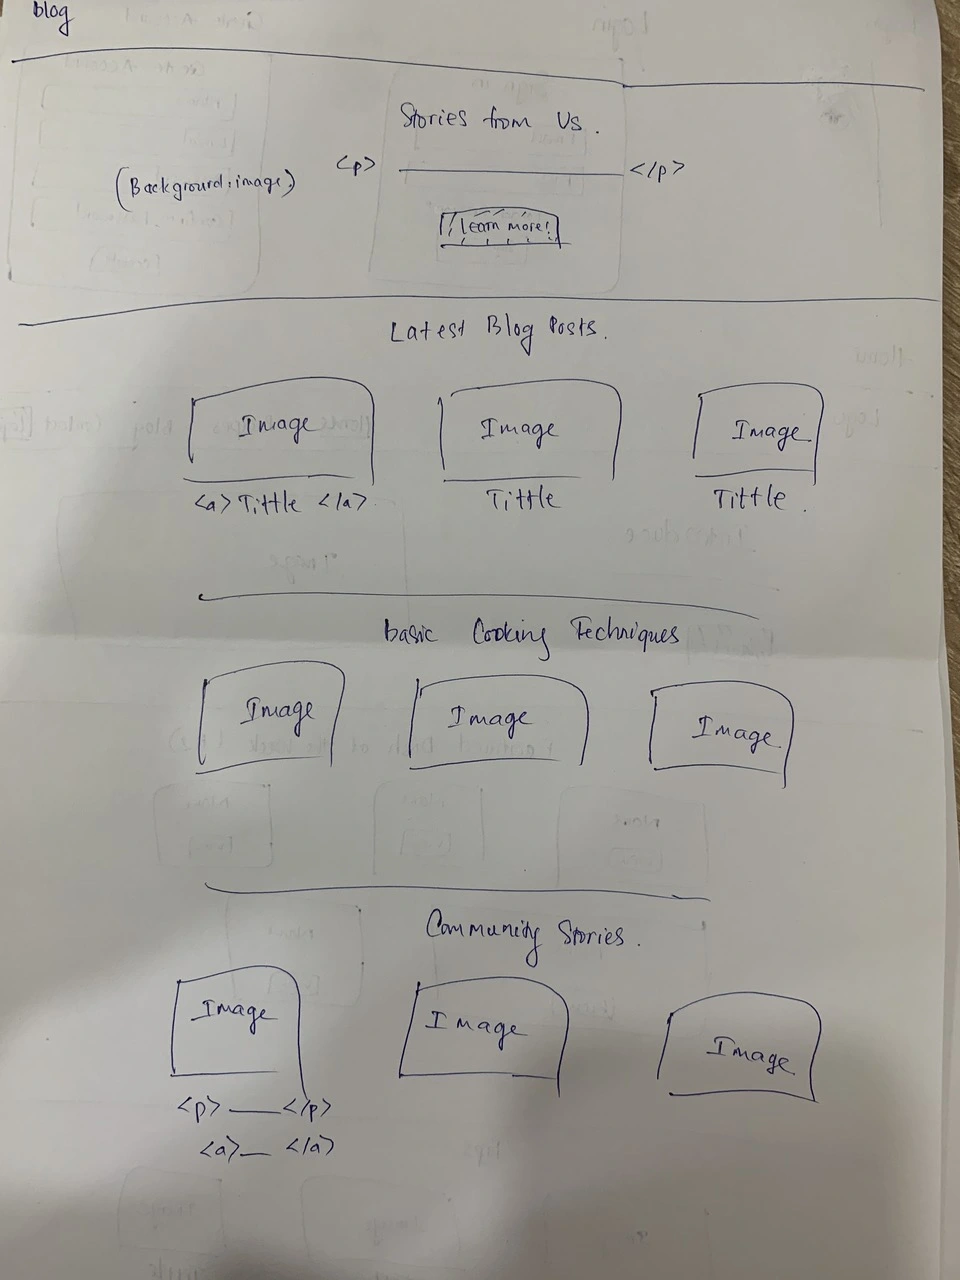 blog
Stories from Us.
(Background:image) <p> </p>
learn more!
Latest Blog Posts.
Image Image Image
<a> Tittle </a> Tittle Tittle.
basic Cooking Techniques
Image Image Image
Community Stories.
Image Image Image
<p> </p>
<a> </a>